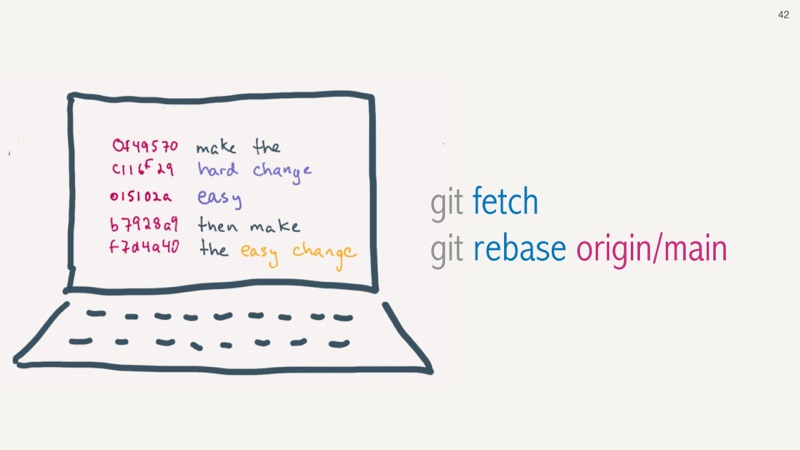 42
0f49570 make the
c116f29 hard change
015102a easy
b7928a9 then make
f7d4a40 the easy change
git fetch
git rebase origin/main